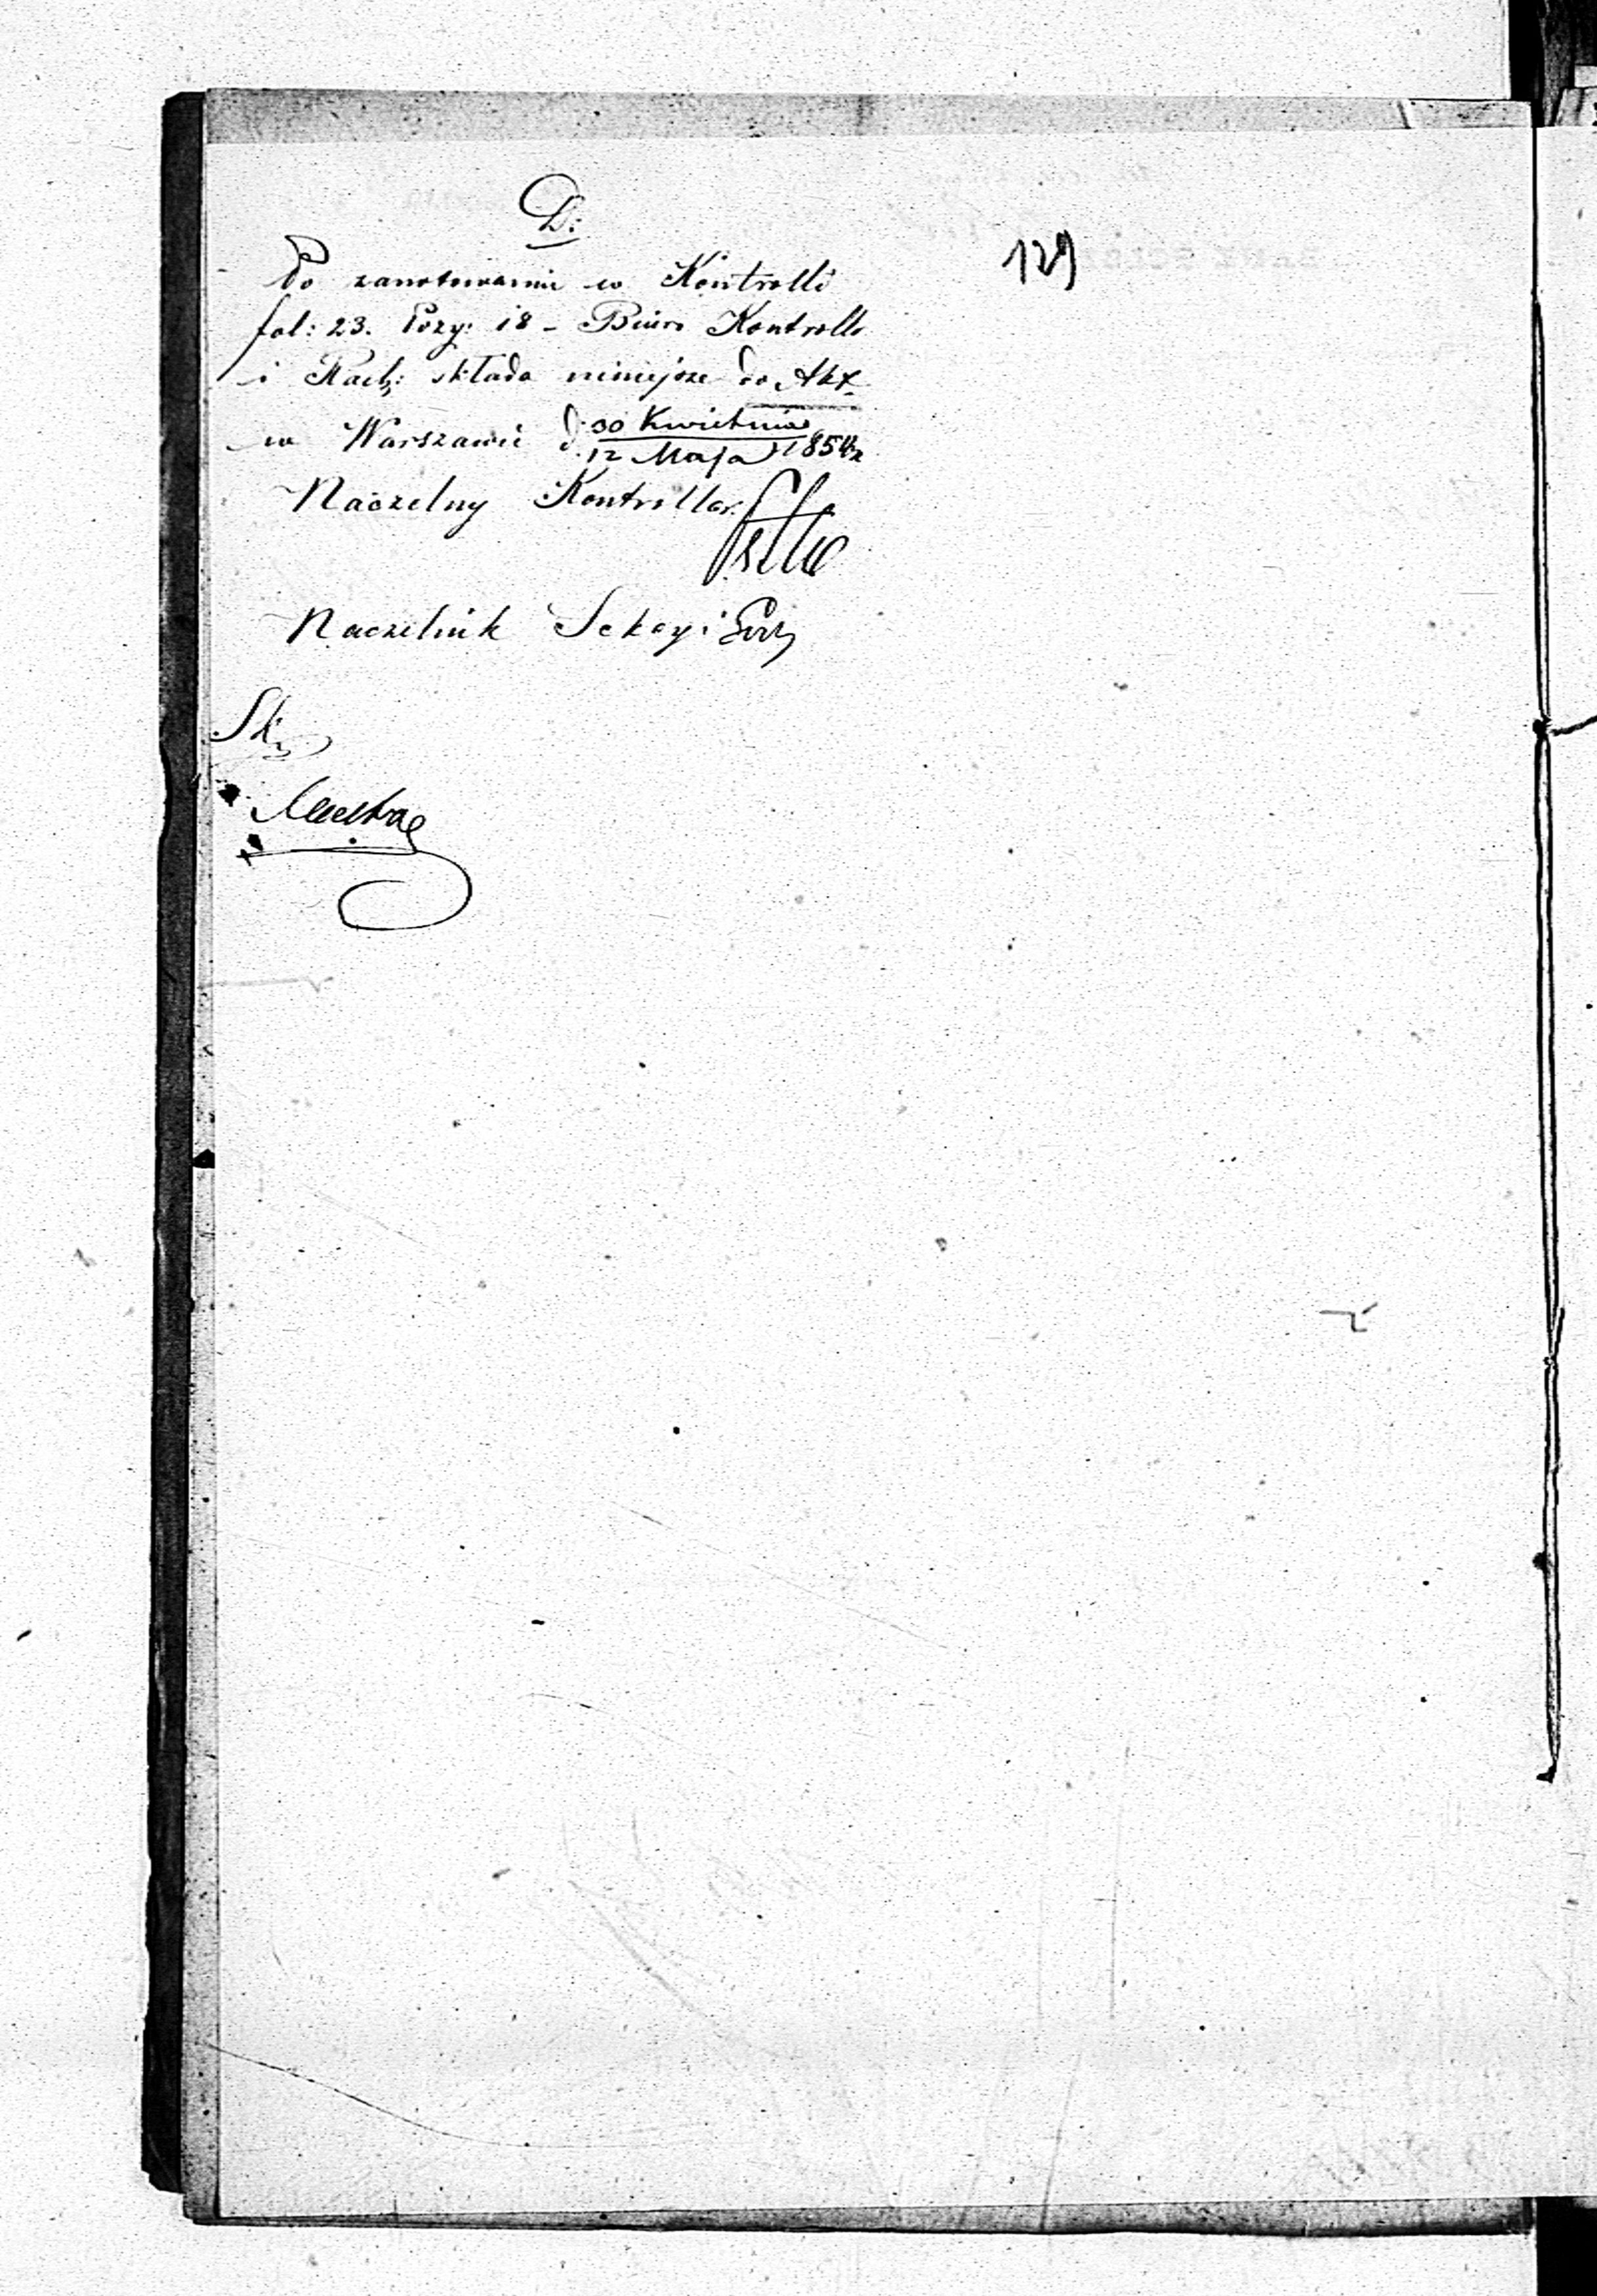 D:
129
Po zanotowaniu w Kontrolli
fol: 23. Pozy: 18 - Biuro Kontrolli
i Rach: składa niniejsze do Akt
w Warszawie d. 30 Kwietnia
12 Maja 1854 r
Naczelny Kontroller
Naczelnik Sekcyi